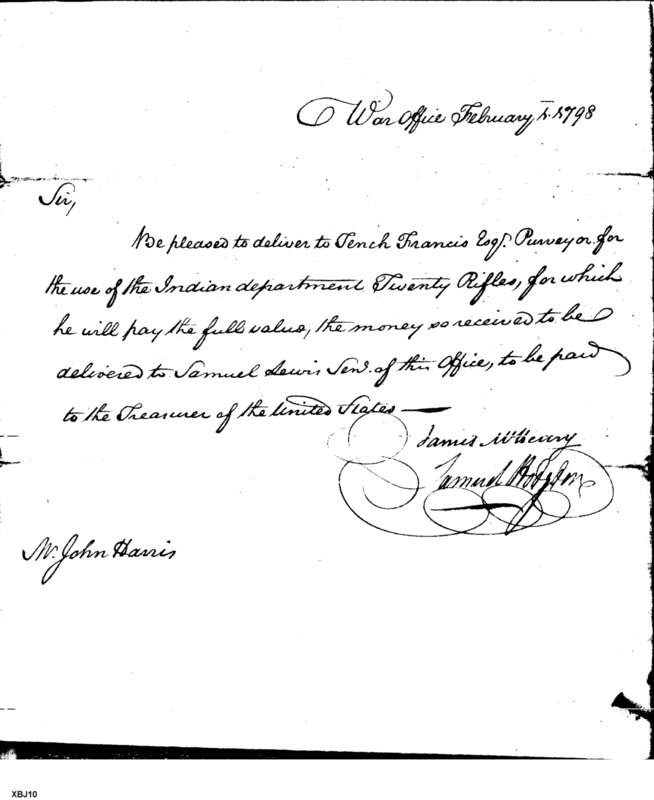 War Office February 1. 1798
Sir,
Be pleased to deliver to Tench Francis Esqr. Purveyor for
the use of the Indian department Twenty Rifles, for which
he will pay the full value, the money so received to be
delivered to Samuel Lewis Senr. of this Office, to be paid
to the Treasurer of the United States —
James McHenry
Samuel Hodgdon
Mr. John Harris
XBJ10